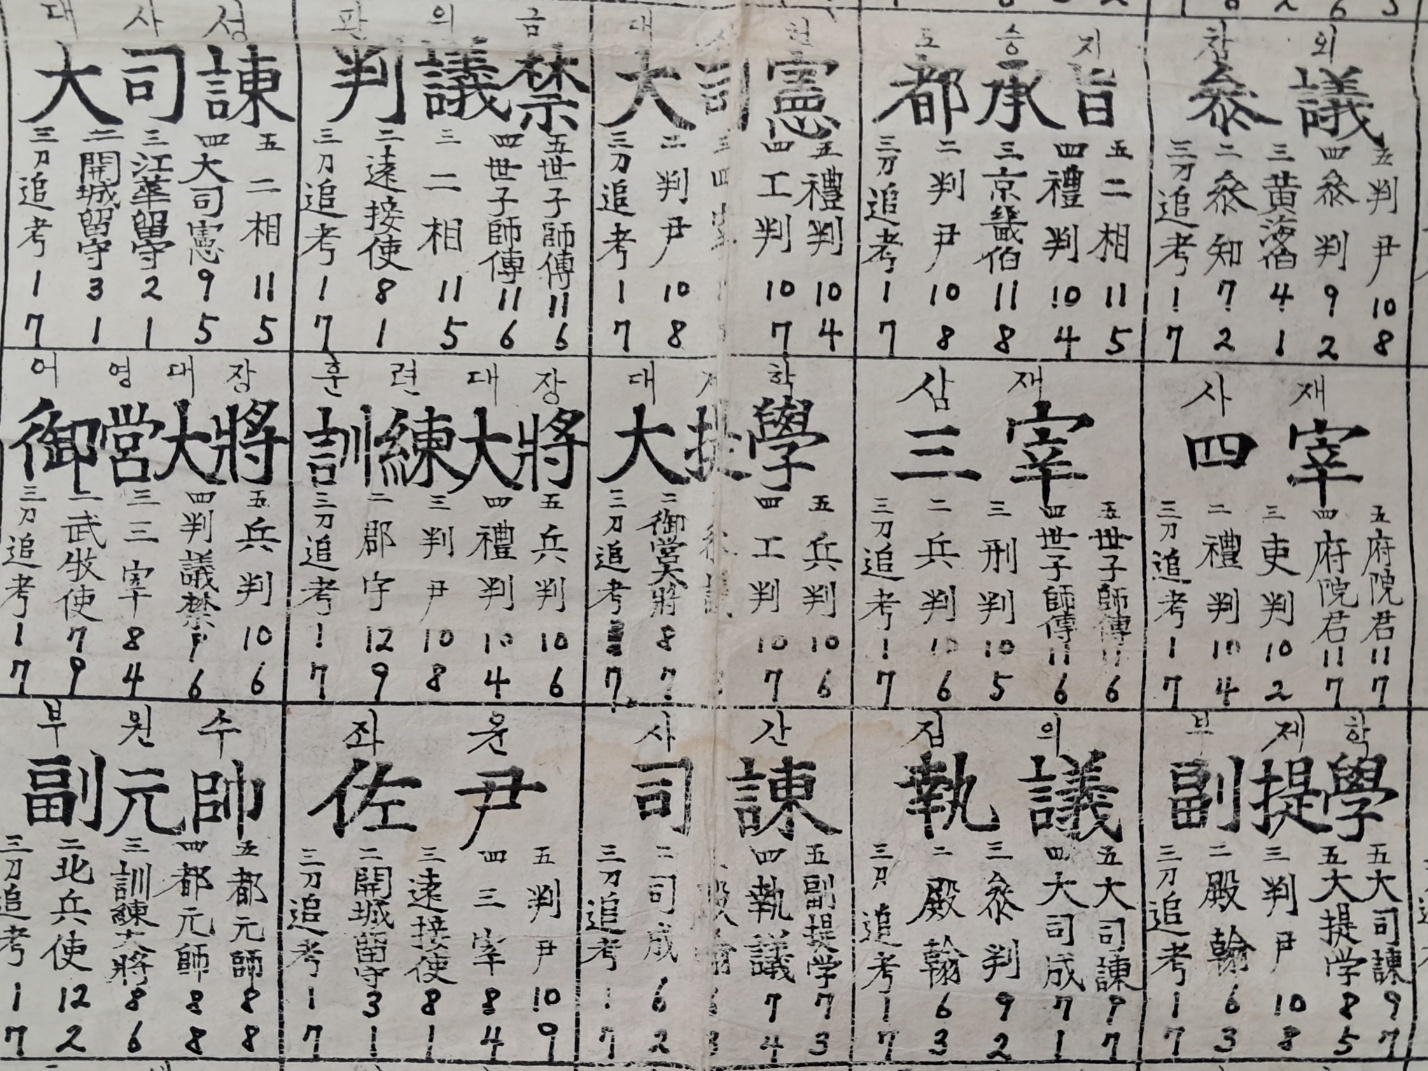 대 사 성
大司諫
三 刀 追考 1 7
二 開城留守 3 1
三 江華留守 2 1
四 大司憲 9 5
五 二相 11 5
판 의 금
判議禁
三 刀 追考 1 7
二 遠接使 8 1
三 二相 11 5
四 世子師傳 11 6
五 世子師傳 11 6
대 헌
大司憲
三 刀 追考 1 7
二 判尹 10 8
四 工判 10 7
五 禮判 10 4
도 승 지
都承旨
三 刀 追考 1 7
二 判尹 10 8
三 京畿伯 11 8
四 禮判 10 4
五 二相 11 5
참 의
叅議
三 刀 追考 1 7
二 叅知 7 2
三 黃海伯 4 1
四 叅判 9 2
五 判尹 10 8
어 영 대 장
御營大將
三 刀 追考 1 7
二 武牧使 7 9
三 三宰 8 4
四 判議禁 6
五 兵判 10 6
훈 련 대 장
訓練大將
三 刀 追考 1 7
二 郡守 12 9
三 判尹 10 8
四 禮判 10 4
五 兵判 10 6
대 제 학
大提學
三 刀 追考 7
二 御營大將 8 7
四 工判 10 7
五 兵判 10 6
삼 재
三宰
三 刀 追考 1 7
二 兵判 10 6
三 刑判 10 5
四 世子師傳 11 6
五 世子師傳 11 6
사 재
四宰
三 刀 追考 1 7
二 禮判 10 4
三 吏判 10 2
四 府院君 11 7
五 府院君 11 7
부 원 수
副元帥
三 刀 追考 1 7
二 北兵使 12 2
三 訓練大將 8 6
四 都元師 8 8
五 都元師 8 8
좌 윤
佐尹
三 刀 追考 1 7
二 開城留守 3 1
三 遠接使 8 1
四 三宰 8 4
五 判尹 10 9
사 간
司諫
三 刀 追考 1 7
二 司成 6 2
殿翰 6 3
四 執議 7 4
五 副提学 7 3
집 의
執議
三 刀 追考 1 7
二 殿翰 6 3
三 叅判 9 2
四 大司成 7 1
五 大司諫 9 7
부 제 학
副提學
三 刀 追考 1 7
二 殿翰 6 3
三 判尹 10 8
五 大提学 8 5
五 大司諫 9 7